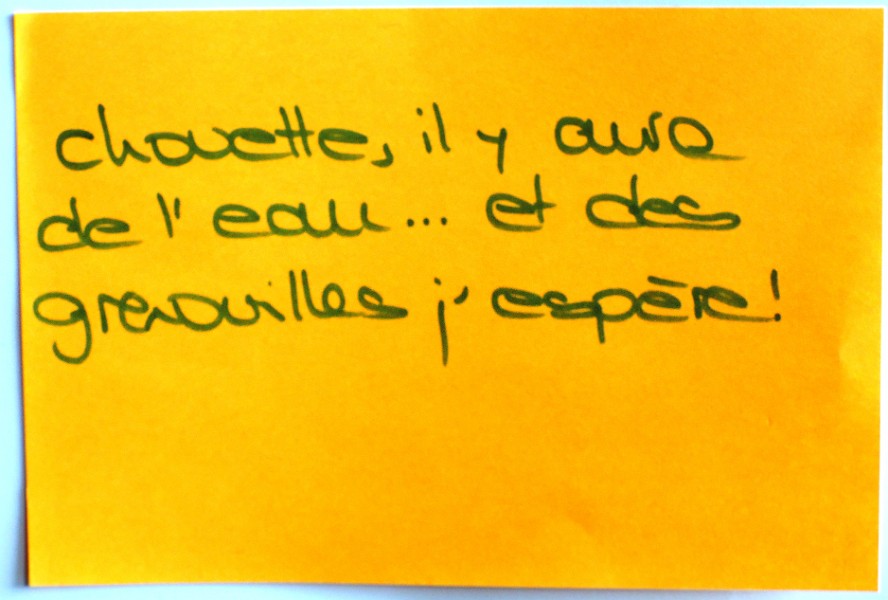 chouette, il y aura
de l'eau... et des
grenouilles j'espère!